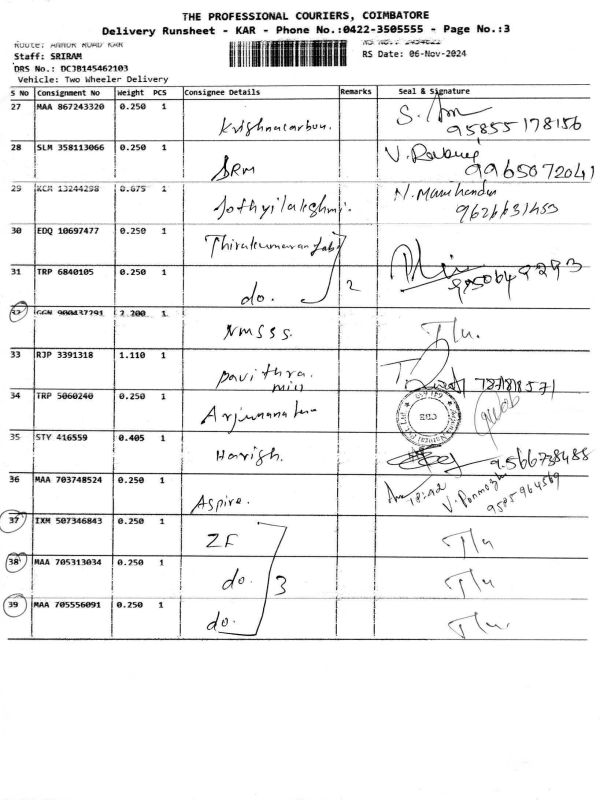 THE PROFESSIONAL COURIERS, COIMBATORE
Delivery Runsheet - KAR - Phone No.:0422-3505555 - Page No.:3
Route: ANNUR ROAD KAR
Staff: SRIRAM RS Date: 06-Nov-2024
DRS No.: DCJB145462103
Vehicle: Two Wheeler Delivery
S No Consignment No Weight PCS Consignee Details Remarks Seal & Signature
27 MAA 867243320 0.250 1 Krishnacarbon. 95855 178156
28 SLM 358113066 0.250 1 SRM 9965072041
29 KCR 13244298 0.675 1 Jothyilakshmi. 9626631453
30 EDQ 10697477 0.250 1 Thirukumaran Lab
31 TRP 6840105 0.250 1 do. 2
32 GGN 900437291 2.200 1 NMSSS.
33 RJP 3391318 1.110 1 pavithra. mill
34 TRP 5060240 0.250 1
35 STY 416559 0.405 1 Harish. 9566738488
36 MAA 703748524 0.250 1 Aspire. 9585964569
37 IXM 507346843 0.250 1 ZF
38 MAA 705313034 0.250 1 do. 3
39 MAA 705556091 0.250 1 do.